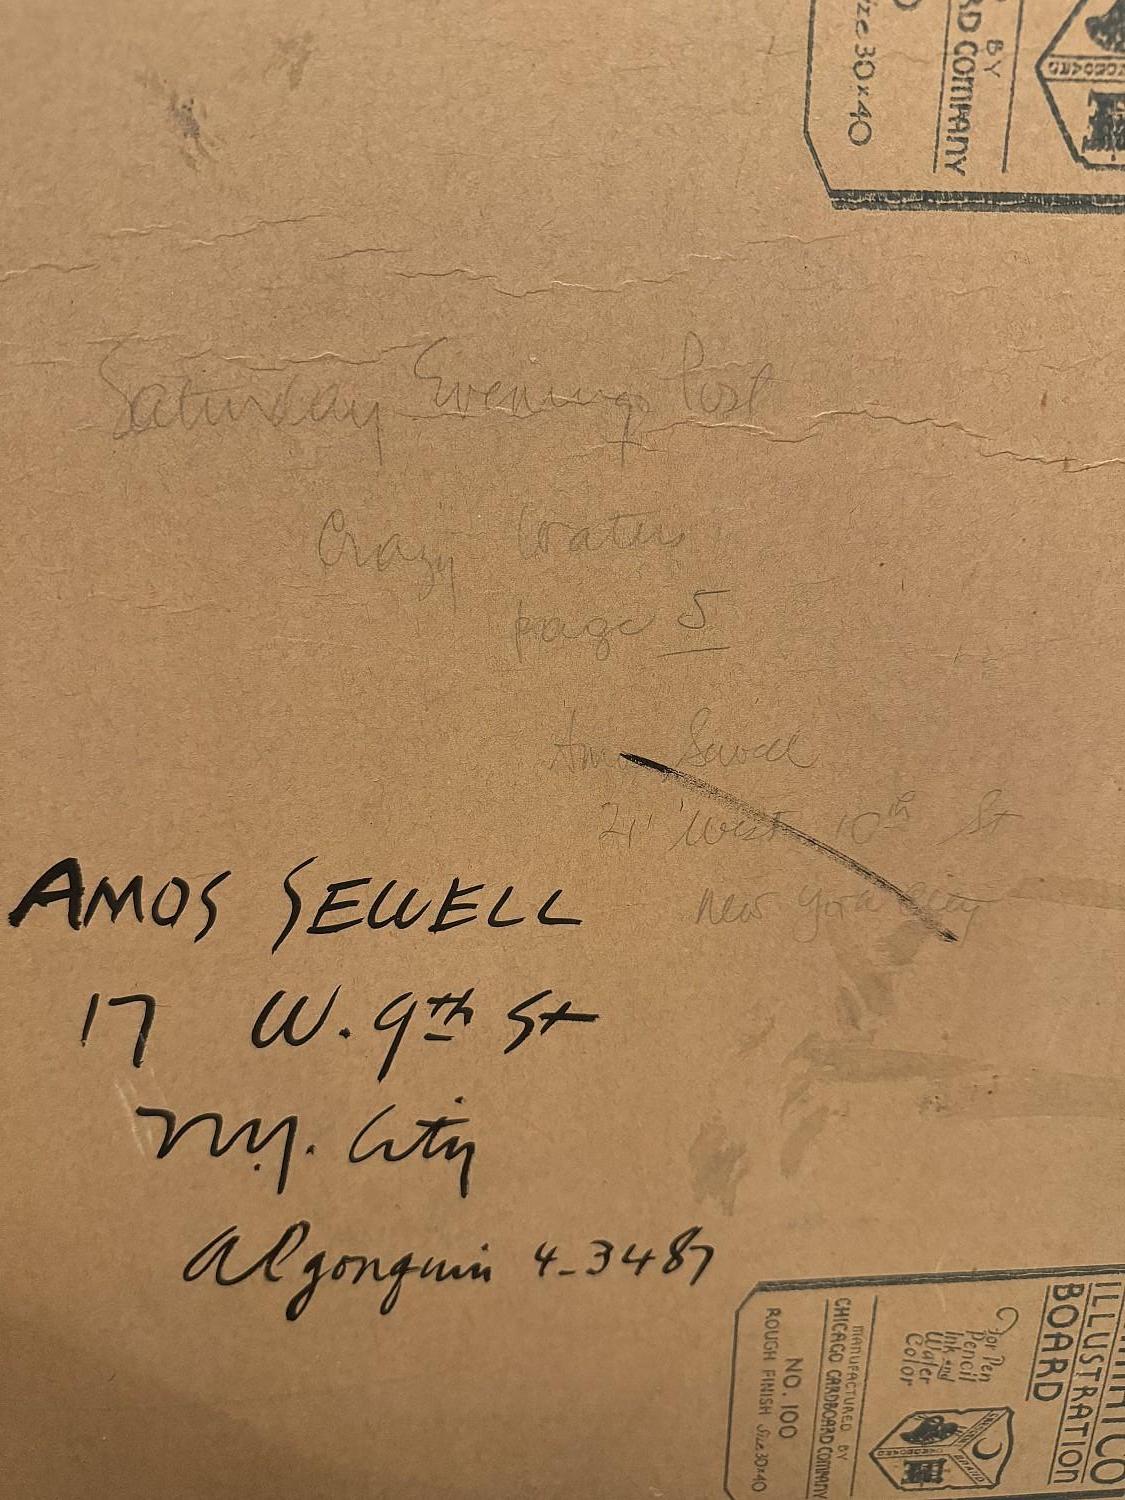 Size 30x40
RD COMPANY
BY
Saturday Evening Post
Crazy Waters
page 5
Amos Sewell
21 West 10th St
New York City
AMOS SEWELL
17 W. 9th St
N.Y. City
Algonquin 4-3487
ILLUSTRATION
BOARD
For Pen
Pencil
Ink and
Water
Color
MANUFACTURED BY
CHICAGO CARDBOARD COMPANY
NO. 100
ROUGH FINISH Size 30x40